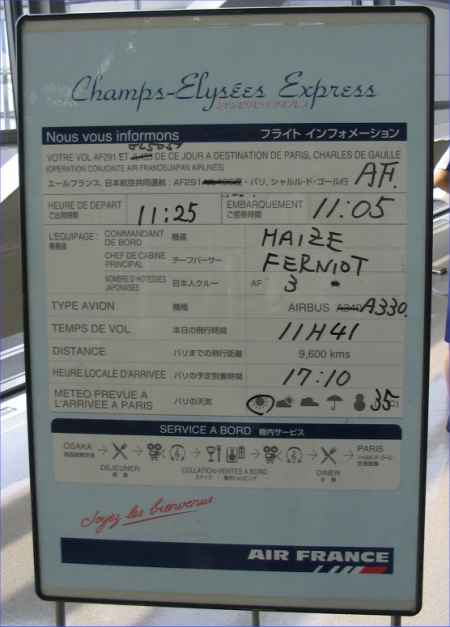 Champs-Elysées Express
シャンゼリゼ エクスプレス
Nous vous informons フライト インフォメーション
VOTRE VOL AF291 ET DE CE JOUR A DESTINATION DE PARIS, CHARLES DE GAULLE
(OPERATION CONJOINTE AIR FRANCE/JAPAN AIRLINES)
エールフランス, 日本航空共同運航 : AF291 パリ, シャルル・ド・ゴール行 AF.
HEURE DE DEPART 11:25 EMBARQUEMENT 11:05
ご出発時間 ご搭乗時間
L'EQUIPAGE : COMMANDANT DE BORD 機長 MAIZE
乗務員 CHEF DE CABINE PRINCIPAL チーフパーサー FERNIOT
NOMBRE D'HOTESSES JAPONAISES 日本人クルー AF 3
TYPE AVION 機種 AIRBUS A340 A330.
TEMPS DE VOL 本日の飛行時間 11H41
DISTANCE パリまでの飛行距離 9,600 kms
HEURE LOCALE D'ARRIVEE パリの予定到着時間 17:10
METEO PREVUE A L'ARRIVEE A PARIS パリの天気 35
SERVICE A BORD 機内サービス
OSAKA PARIS
DEJEUNER COLLATION-VENTES A BORD DINER
Soyez les bienvenus
AIR FRANCE